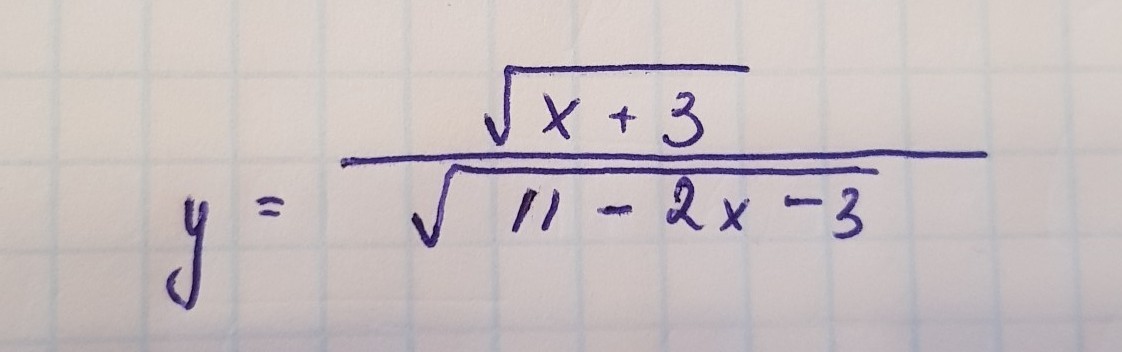 y = \frac{\sqrt{x + 3}}{\sqrt{11 - 2x - 3}}